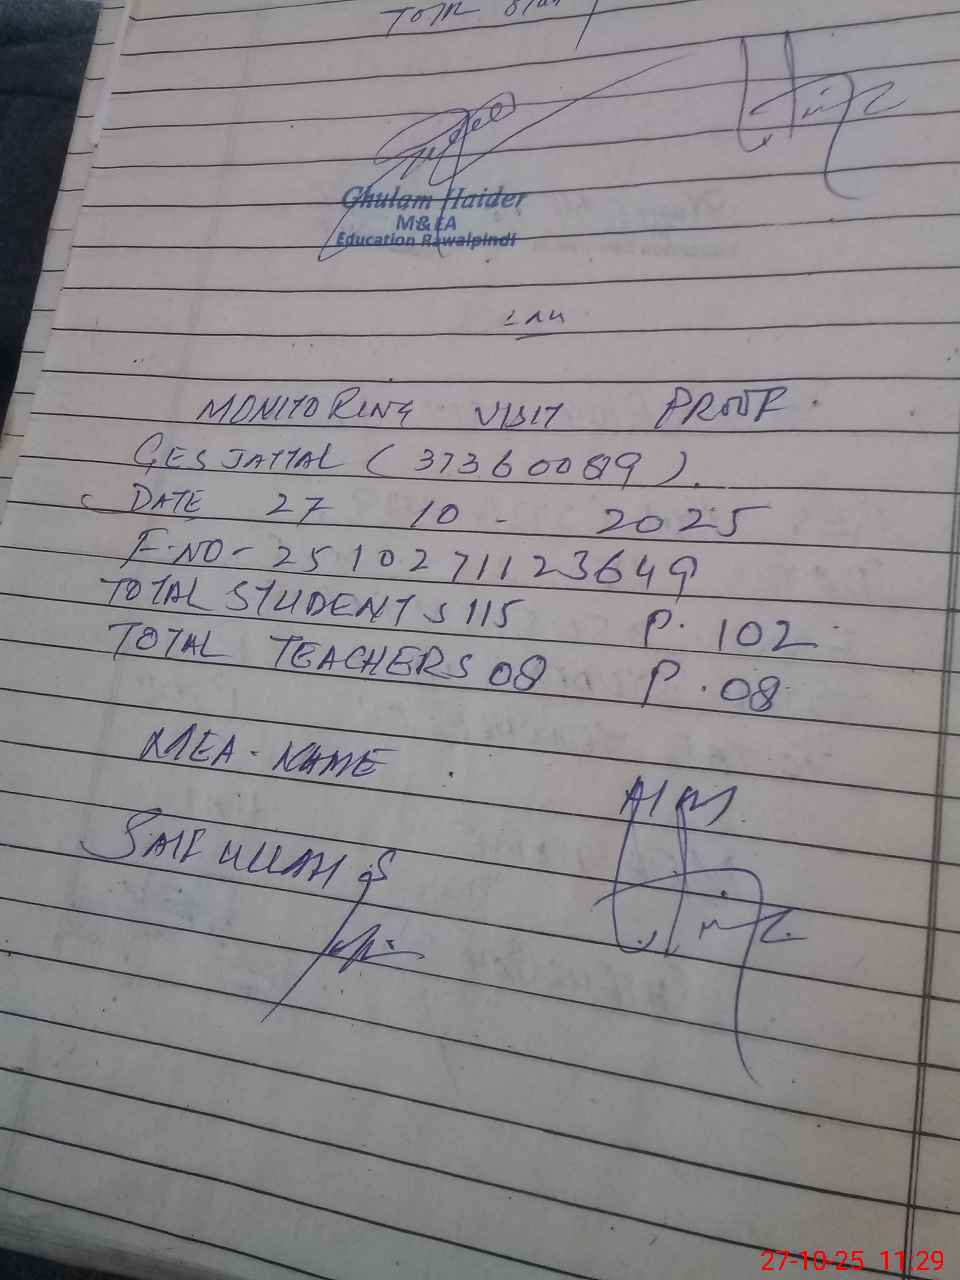 TOTAL
Ghulam Haider
M&EA
Education Rawalpindi
MONITORING VISIT PROOF
GES JATTAL (37360089).
DATE 27 10 - 2025
F-NO - 2510271123649
TOTAL STUDENTS 115 P. 102
TOTAL TEACHERS 08 P. 08
MEA - NAME
SAIF ULLAH S
27-10-25 11:29